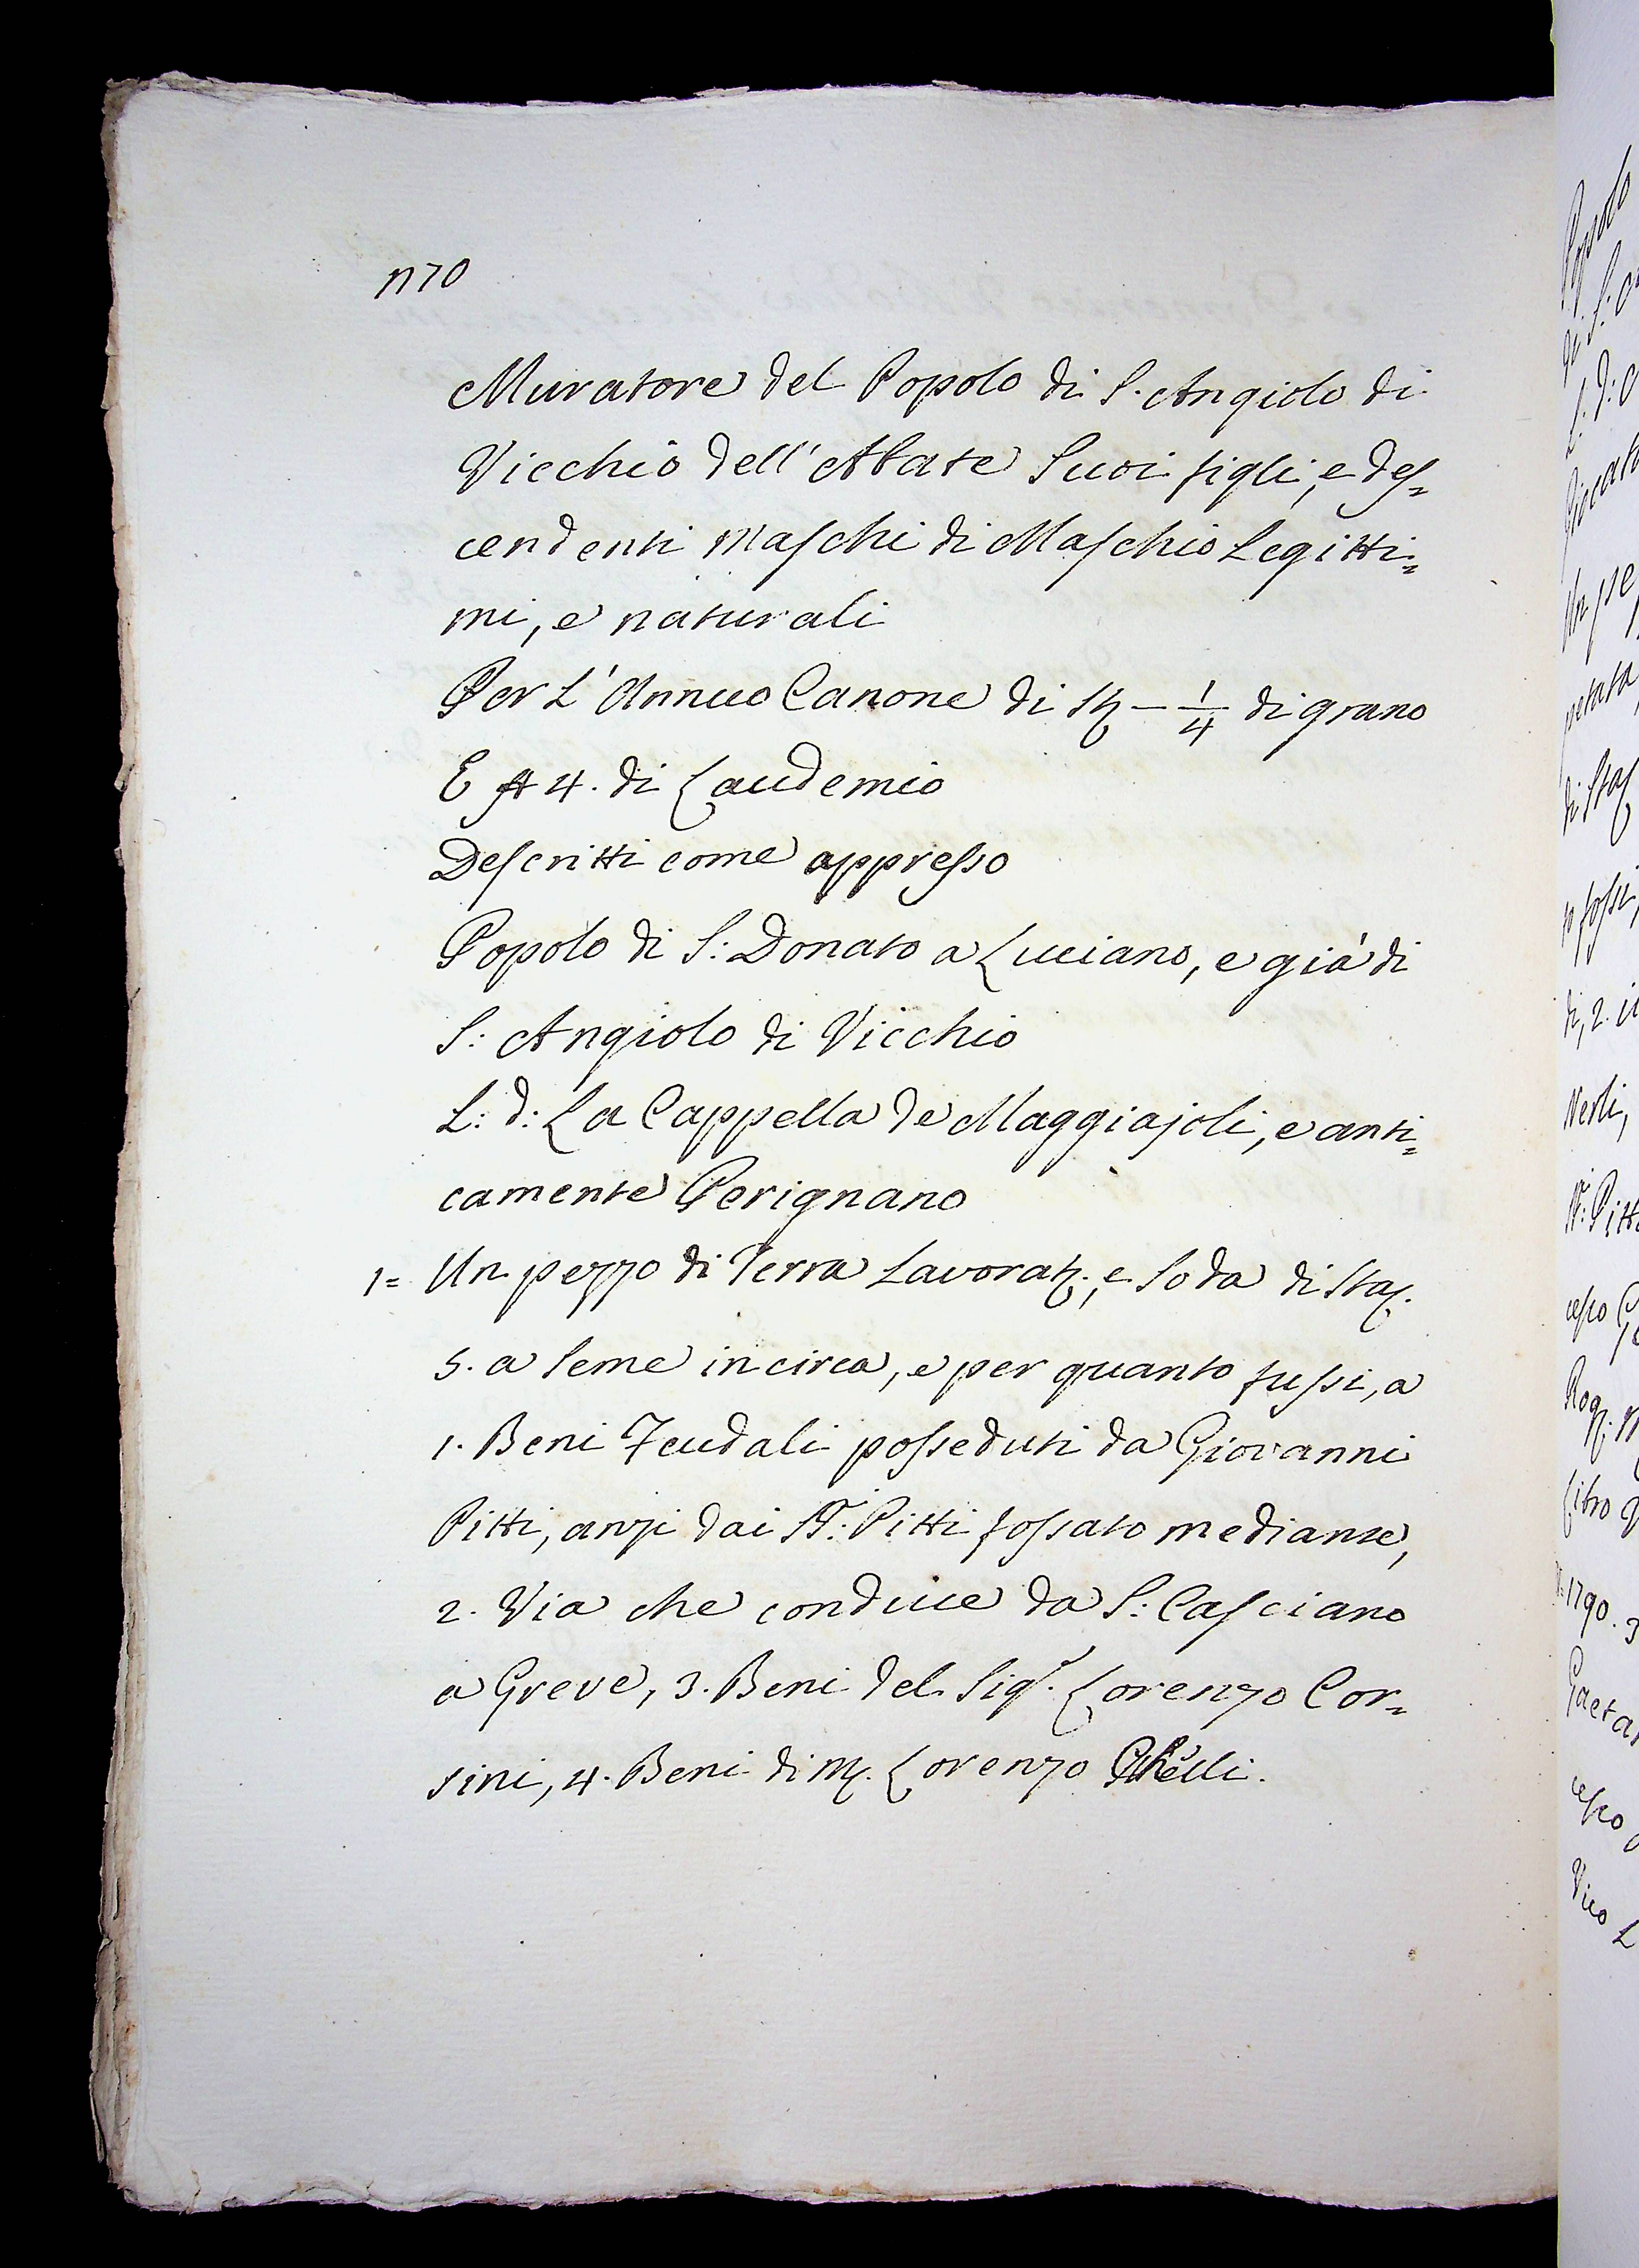 1170
Muratore del Popolo di S. Angiolo di
Vicchio dell' Abate Suoi figli, e des=
cendenti Maschi di Maschio Legitti=
mi, e naturali
Per L' Annuo Canone di St — 1/4 di grano
E ₶ 4. di Laudemio
Descritti come appresso
Popolo di S: Donato a Luciano, e già di
S: Angiolo di Vicchio
L: d: La Cappella de Maggiajoli, e anti=
camente Perignano
1= Un pezzo di Terra Lavorat:, e Soda di Sta:
5. a Seme in circa, e per quanto fussi, a
1. Beni Feudali posseduti da Giovanni
Pitti, anzi dai SS.ri: Pitti fossato mediante,
2. Via che conduce da S: Casciano
a Greve, 3. Beni del Sig.r Lorenzo Cor=
sini, 4. Beni di M. Lorenzo
Popolo
di S:
L: d:
Un pe
di Sta
di, 2.
Nerli,
Pitti
Libro
1790. 3
Gaetan
Vico L